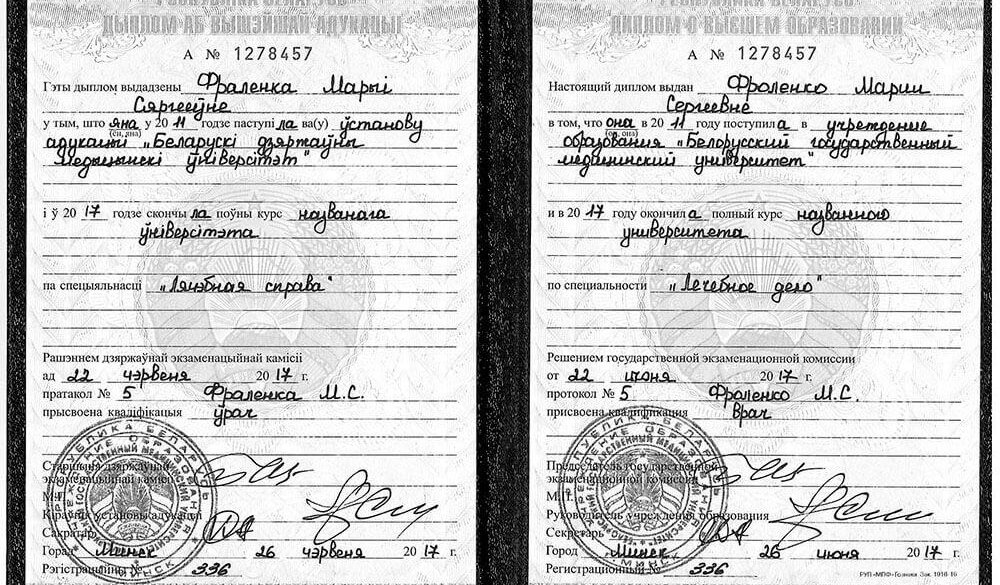 ДЫПЛОМ АБ ВЫШЭЙШАЙ АДУКАЦЫІ
А № 1278457
Гэты дыплом выдадзены Фраленка Марыі
Сяргееўне
у тым, што яна у 2011 годзе паступіла ва(у) ўстанову
(ён, яна)
адукацыі „Беларускі дзяржаўны
медыцынскі ўніверсітэт"
і ў 2017 годзе скончыла поўны курс названага
ўніверсітэта
па спецыяльнасці „Лячэбная справа"
Рашэннем дзяржаўнай экзаменацыйнай камісіі
ад 22 чэрвеня 2017 г.
пратакол № 5 Фраленка М.С.
прысвоена кваліфікацыя ўрач
Старшыня дзяржаўнай
экзаменацыйнай камісіі
М.П.
Кіраўнік установы адукацыі
Сакратар
Горад Минск 26 чэрвеня 2017 г.
Рэгістрацыйны № 336
ДИПЛОМ О ВЫСШЕМ ОБРАЗОВАНИИ
А № 1278457
Настоящий диплом выдан Фроленко Марии
Сергеевне
в том, что она в 2011 году поступила в учреждение
(он, она)
образования „Белорусский государственный
медицинский университет"
и в 2017 году окончила полный курс названного
университета
по специальности „Лечебное дело"
Решением государственной экзаменационной комиссии
от 22 июня 2017 г.
протокол № 5 Фроленко М.С.
присвоена квалификация врач
Председатель государственной
экзаменационной комиссии
М.П.
Руководитель учреждения образования
Секретарь
Город Минск 26 июня 2017 г.
Регистрационный № 336
РУП «МПФ» Гознака Зак. 1016-16